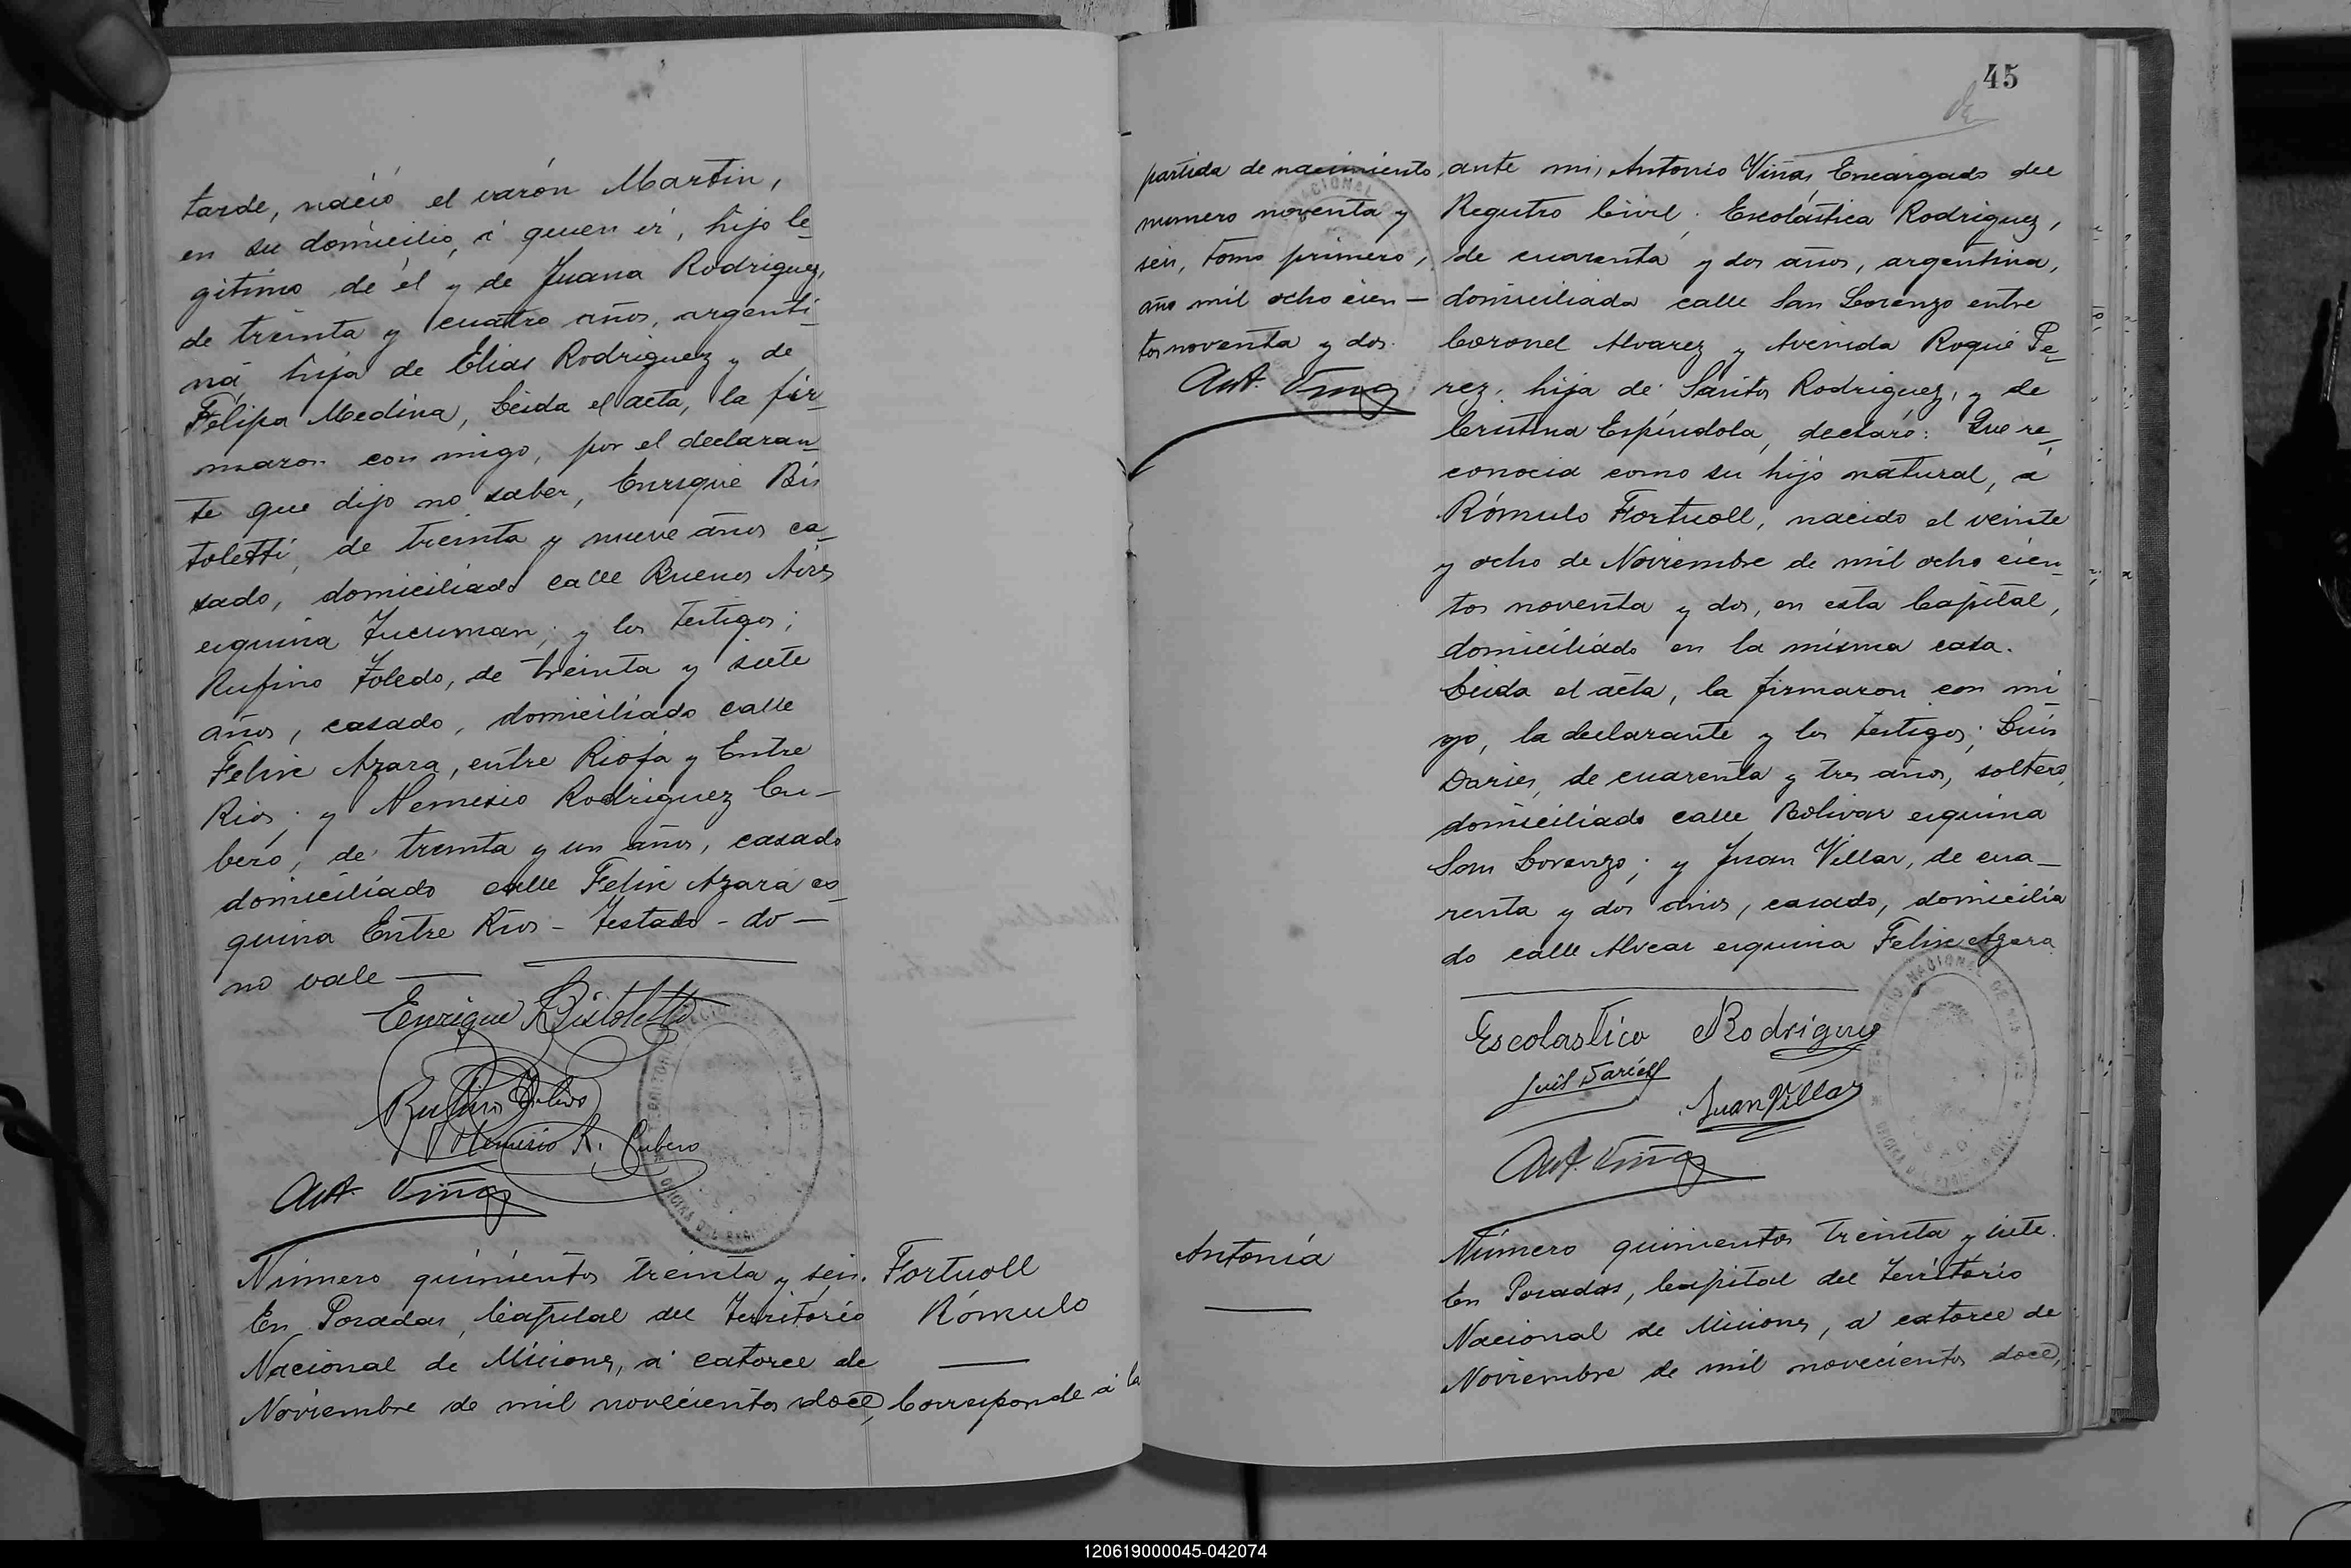 tarde, nació el varón Martin,
en su domicilio, á quien ví, hijo le-
gítimo de él y de Juana Rodriguez,
de treinta y cuatro años, argenti-
na, hija de Elias Rodriguez y de
Felipa Medina, Leida el acta, la fir-
maron con migo, por el declaran-
te que dijo no saber, Enrique Bis
toletti, de treinta y nueve años ca-
sado, domiciliado calle Buenos Aires
esquina Tucuman; y los testigos;
Rufino Toledo, de treinta y siete
años, casado, domiciliado calle
Felix Azara, entre Rioja y Entre
Rios; y Nemesio Rodriguez Cu-
bero, de treinta y un años, casado
domiciliado calle Felix Azara es-
quina Entre Rios - Testado - do -
no vale
Enrique Bistoletti
Rufino Toledo
Nemesio R. Cubero
Ant. Viñas
Número quinientos treinta y seis.
En Posadas, Capital del Territorio
Nacional de Misiones, á catorce de
Noviembre de mil novecientos doce,
Fortuoll
Rómulo
Corresponde á la
45
partida de nacimiento
numero noventa y
seis, tomo primero,
año mil ocho cien-
tos noventa y dos.
Ant. Viñas
ante mi, Antonio Viñas, Encargado del
Registro Civil; Escolástica Rodriguez,
de cuarenta y dos años, argentina,
domiciliada calle San Lorenzo entre
Coronel Alvarez y Avenida Roque Pe-
rez; hija de Santos Rodriguez, y de
Cristina Espíndola, declaró: Que re-
conocia como su hijo natural, á
Rómulo Fortuoll, nacido el veinte
y ocho de Noviembre de mil ocho cien-
tos noventa y dos, en esta Capital,
domiciliado en la misma casa.
Leida el acta, la firmaron con mi
go, la declarante y los testigos; Luis
Daries, de cuarenta y tres años, soltero,
domiciliado calle Bolivar esquina
San Lorenzo; y Juan Villar, de cua-
renta y dos años, casado, domicilia
do calle Alvear esquina Felix Azara
Escolastica Rodriguez
Luis Daries
Juan Villar
Ant. Viñas
Antonia
Número quinientos treinta y siete.
En Posadas, Capital del Territorio
Nacional de Misiones, á catorce de
Noviembre de mil novecientos doce,
120619000045-042074